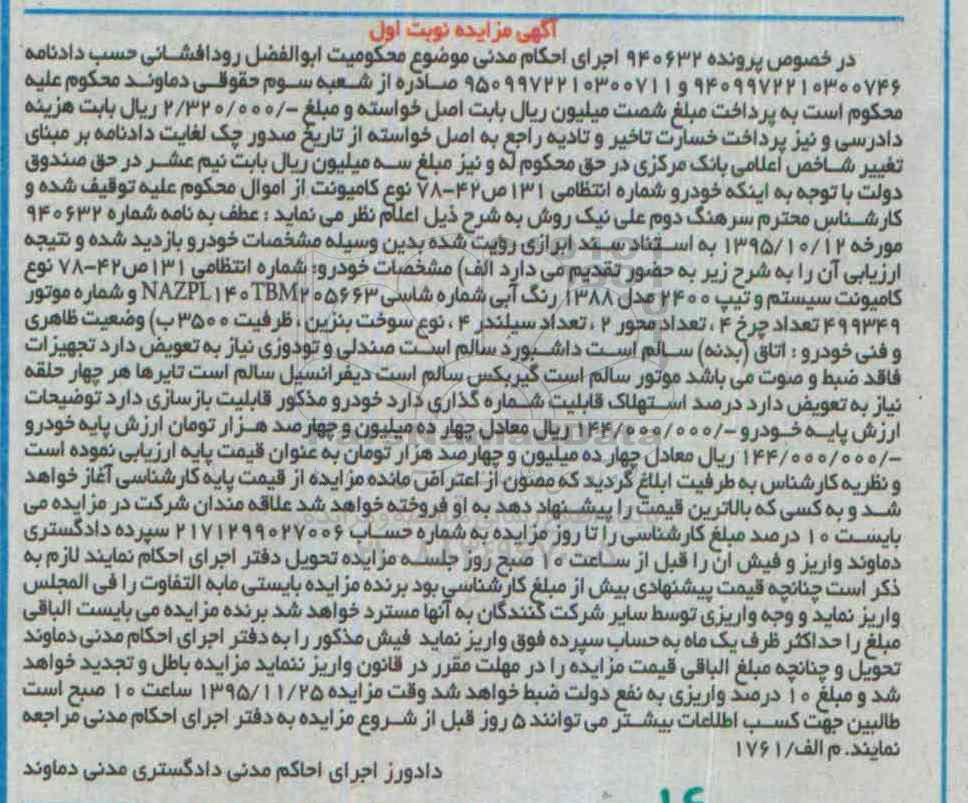 آگهی مزایده نوبت اول
در خصوص پرونده ۹۴۰۶۳۲ اجرای احکام مدنی موضوع محکومیت ابوالفضل رودافشانی حسب دادنامه
۹۴۰۹۹۷۲۲۱۰۳۰۰۷۴۶ و ۹۵۰۹۹۷۲۲۱۰۳۰۰۷۱۱ صادره از شعبه سوم حقوقی دماوند محکوم علیه
محکوم است به پرداخت مبلغ شصت میلیون ریال بابت اصل خواسته و مبلغ -/۲/۳۲۰/۰۰۰ ریال بابت هزینه
دادرسی و نیز پرداخت خسارت تاخیر و تادیه راجع به اصل خواسته از تاریخ صدور چک لغایت دادنامه بر مبنای
تغییر شاخص اعلامی بانک مرکزی در حق محکوم له و نیز مبلغ سه میلیون ریال بابت نیم عشر در حق صندوق
دولت با توجه به اینکه خودرو شماره انتظامی ۱۳۱ص۴۲-۷۸ نوع کامیونت از اموال محکوم علیه توقیف شده و
کارشناس محترم سرهنگ دوم علی نیک روش به شرح ذیل اعلام نظر می نماید : عطف به نامه شماره ۹۴۰۶۳۲
مورخه ۱۳۹۵/۱۰/۱۲ به استناد سند ابرازی رویت شده بدین وسیله مشخصات خودرو بازدید شده و نتیجه
ارزیابی آن را به شرح زیر به حضور تقدیم می دارد الف) مشخصات خودرو: شماره انتظامی ۱۳۱ص۴۲-۷۸ نوع
کامیونت سیستم و تیپ ۲۴۰۰ مدل ۱۳۸۸ رنگ آبی شماره شاسی NAZPL۱۴۰TBM۲۰۵۶۶۳ و شماره موتور
۴۹۹۳۴۹ تعداد چرخ ۴ ، تعداد محور ۲ ، تعداد سیلندر ۴ ، نوع سوخت بنزین ، ظرفیت ۳۵۰۰ ب) وضعیت ظاهری
و فنی خودرو : اتاق (بدنه) سالم است داشبورد سالم است صندلی و تودوزی نیاز به تعویض دارد تجهیزات
فاقد ضبط و صوت می باشد موتور سالم است گیربکس سالم است دیفرانسیل سالم است تایرها هر چهار حلقه
نیاز به تعویض دارد درصد استهلاک قابلیت شماره گذاری دارد خودرو مذکور قابلیت بازسازی دارد توضیحات
ارزش پایه خودرو -/۱۴۴/۰۰۰/۰۰۰ ریال معادل چهار ده میلیون و چهارصد هزار تومان ارزش پایه خودرو
-/۱۴۴/۰۰۰/۰۰۰ ریال معادل چهار ده میلیون و چهارصد هزار تومان به عنوان قیمت پایه ارزیابی نموده است
و نظریه کارشناس به طرفیت ابلاغ گردید که مصون از اعتراض مانده مزایده از قیمت پایه کارشناسی آغاز خواهد
شد و به کسی که بالاترین قیمت را پیشنهاد دهد به او فروخته خواهد شد علاقه مندان شرکت در مزایده می
بایست ۱۰ درصد مبلغ کارشناسی را تا روز مزایده به شماره حساب ۲۱۷۱۲۹۹۰۲۷۰۰۶ سپرده دادگستری
دماوند واریز و فیش آن را قبل از ساعت ۱۰ صبح روز جلسه مزایده تحویل دفتر اجرای احکام نمایند لازم به
ذکر است چنانچه قیمت پیشنهادی بیش از مبلغ کارشناسی بود برنده مزایده بایستی مابه التفاوت را فی المجلس
واریز نماید و وجه واریزی توسط سایر شرکت کنندگان به آنها مسترد خواهد شد برنده مزایده می بایست الباقی
مبلغ را حداکثر ظرف یک ماه به حساب سپرده فوق واریز نماید فیش مذکور را به دفتر اجرای احکام مدنی دماوند
تحویل و چنانچه مبلغ الباقی قیمت مزایده را در مهلت مقرر در قانون واریز ننماید مزایده باطل و تجدید خواهد
شد و مبلغ ۱۰ درصد واریزی به نفع دولت ضبط خواهد شد وقت مزایده ۱۳۹۵/۱۱/۲۵ ساعت ۱۰ صبح است
طالبین جهت کسب اطلاعات بیشتر می توانند ۵ روز قبل از شروع مزایده به دفتر اجرای احکام مدنی مراجعه
نمایند. م الف/۱۷۶۱
دادورز اجرای احاکم مدنی دادگستری مدنی دماوند